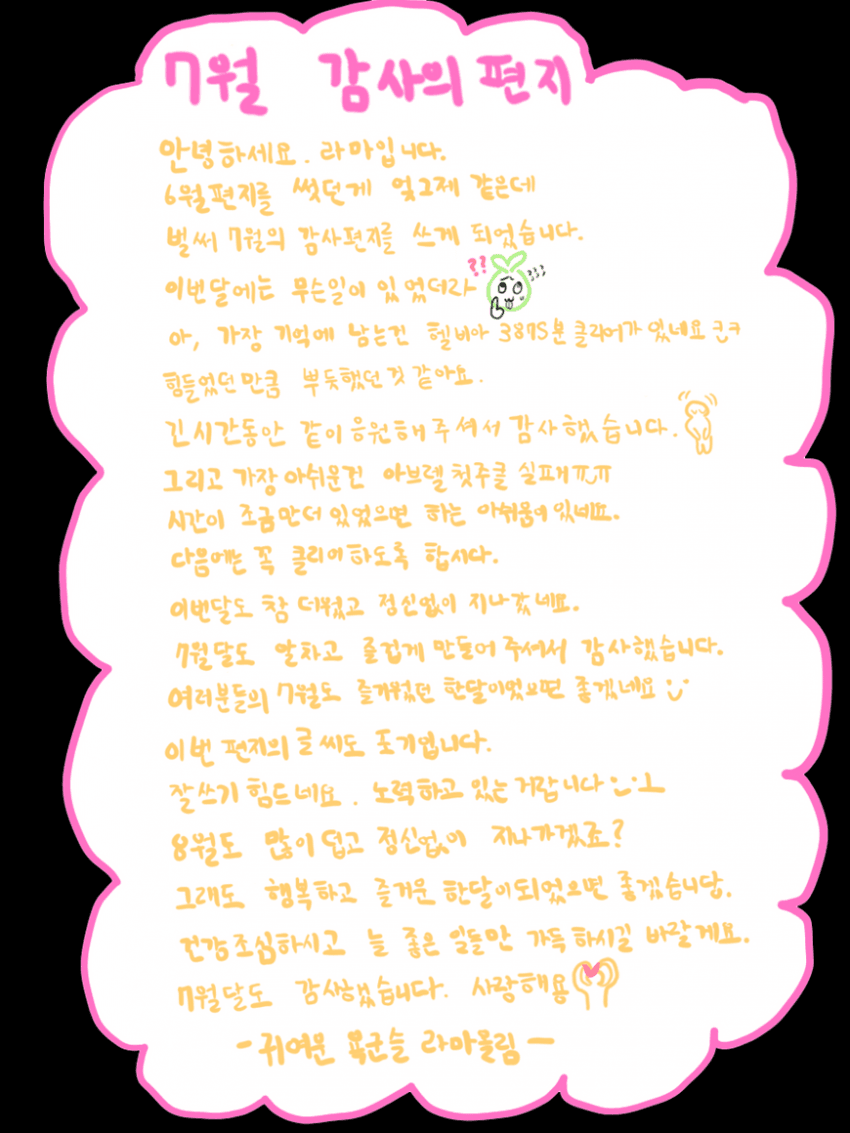 7월 감사의 편지
안녕하세요. 라마입니다.
6월편지를 썼던게 엊그제 같은데
벌써 7월의 감사편지를 쓰게 되었습니다.
이번달에는 무슨일이 있었더라 ?? ???
아, 가장 기억에 남는건 헬비아 387S분 클리어가 있네요 ㅋㅋ
힘들었던 만큼 뿌듯했던것 같아요.
긴시간동안 같이 응원해주셔서 감사했습니다.
그리고 가장 아쉬운건 아브렐 첫주클 실패ㅠㅠ
시간이 조금만더 있었으면 하는 아쉬움이 있네요.
다음에는 꼭 클리어하도록 합시다.
이번달도 참 더웠고 정신없이 지나갔네요.
7월달도 알차고 즐겁게 만들어 주셔서 감사했습니다.
여러분들의 7월도 즐거웠던 한달이었으면 좋겠네요
이번 편지의 글씨도 포기입니다.
잘쓰기 힘드네요. 노력하고 있는거랍니다
8월도 많이 덥고 정신없이 지나가겠죠?
그래도 행복하고 즐거운 한달이되었으면 좋겠습니당.
건강조심하시고 늘 좋은 일들만 가득하시길 바랄게요.
7월달도 감사했습니다. 사랑해용
- 귀여운 육군슬 라마올림 -